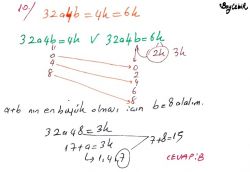 10/ 32a4b = 4k = 6k
32a4b = 4k V 32a4b = 6k
0 0 2k 3k
4 2
8 4
6
8
a+b nin en büyük olması için b=8 alalım.
32a48 = 3k
17+a = 3k 7+8=15
1,4,7
CEVAP:B